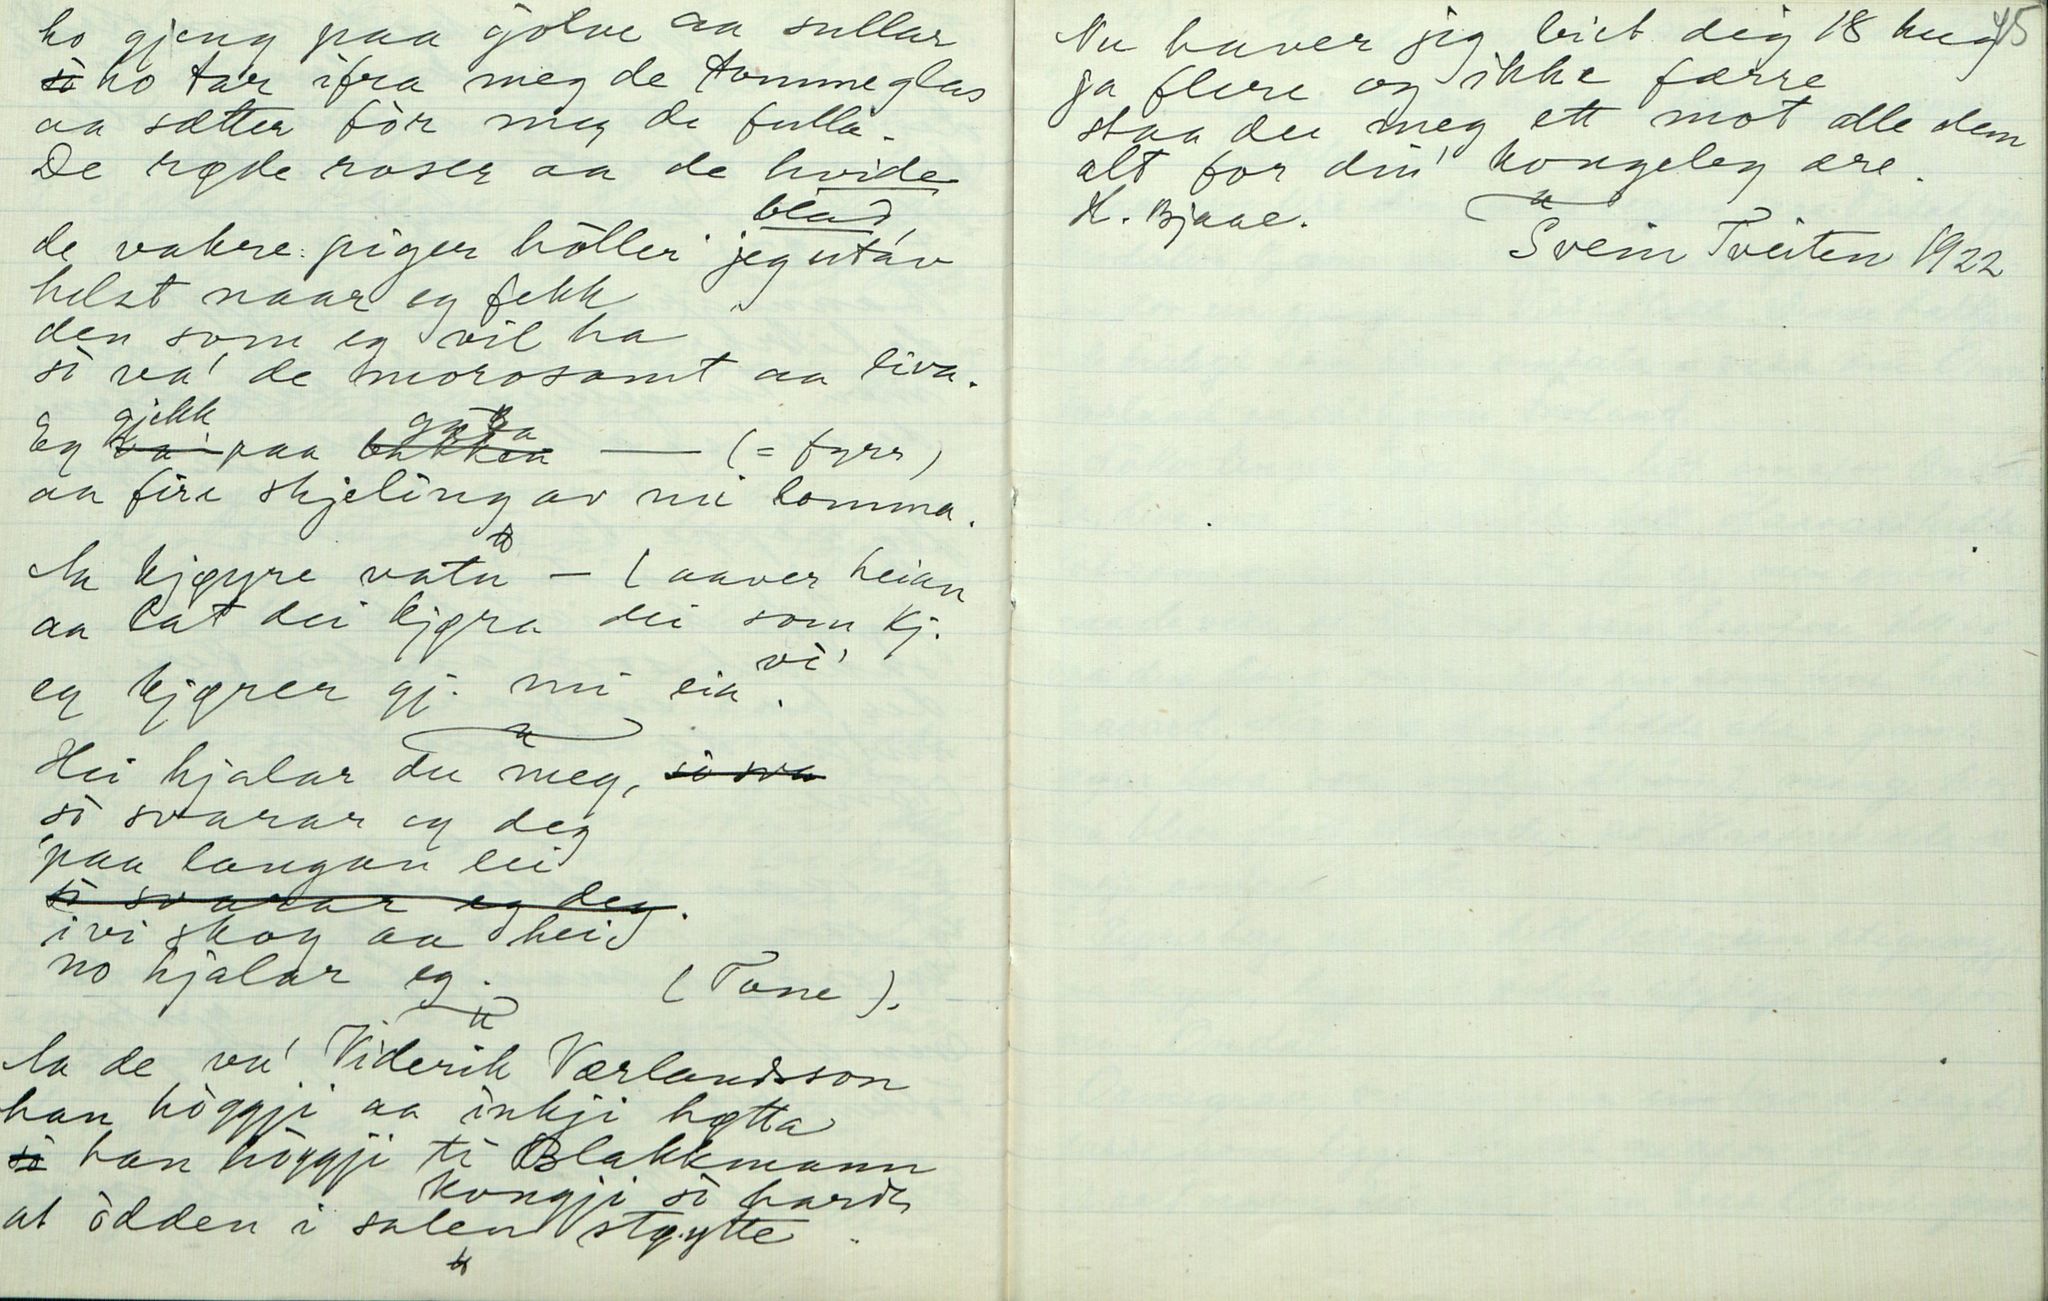 ho gjeng paa gòlve aa sullar
sò ho tar ifra meg de tomme glas
aa sætter fòr meg de fulla.
De røde roser aa de hvide
blad,
de vakre piger höller jeg utáv
helst naar eg fekk
den som eg vil ha
sò va' de morosamt aa liva.
gjekk gata
Eg va' paa bakken — (= fyrr)
aa fire skjeling av mi lomma.
Aa kjøyre vatn — (aaver heian
aa lat dei kjøra dei som kj.
eg kjører gj. mi eia vi'.
Hei hjalar du meg, sò sva
sò svarar eg deg
paa langan lei
sò svarar eg deg.
ivi skog aa hei
no hjalar eg. (Tone).
Aa de va' Viderik Værlandsson
han höggji aa inkji høtta
sò han höggji ti Blakkmann
kongji sò hardt
at òdden i salen støytte.
45
Nu haver jig biet dig 18 hug
ja flere og ikke færre
staa du meg ett mot alle dem
alt for din kongeleg ære.
H. Bjaae.
Svein Tveiten 1922